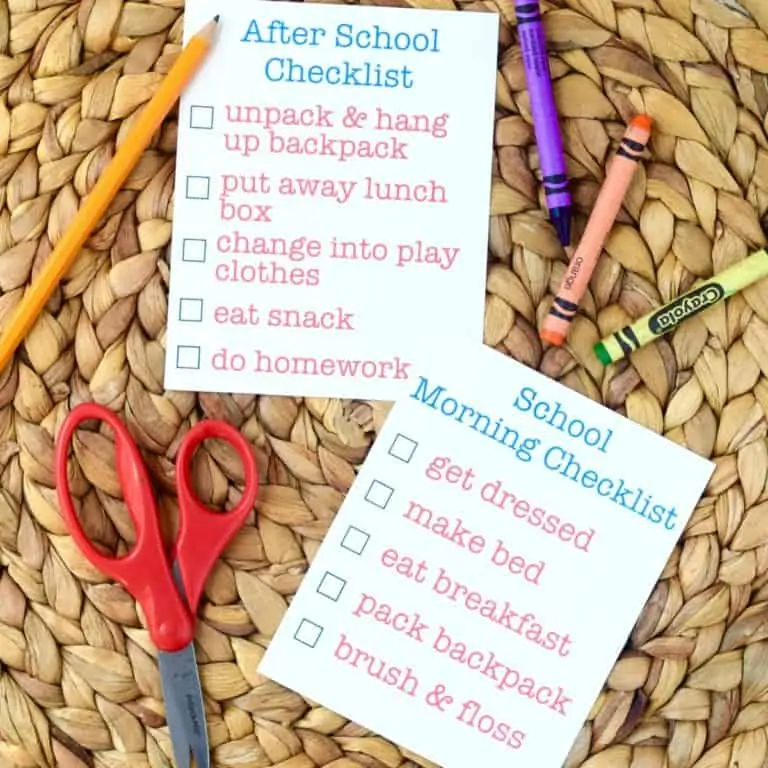 After School
Checklist
unpack & hang
up backpack
put away lunch
box
change into play
clothes
eat snack
do homework
School
Morning Checklist
get dressed
make bed
eat breakfast
pack backpack
brush & floss
orange
Crayola